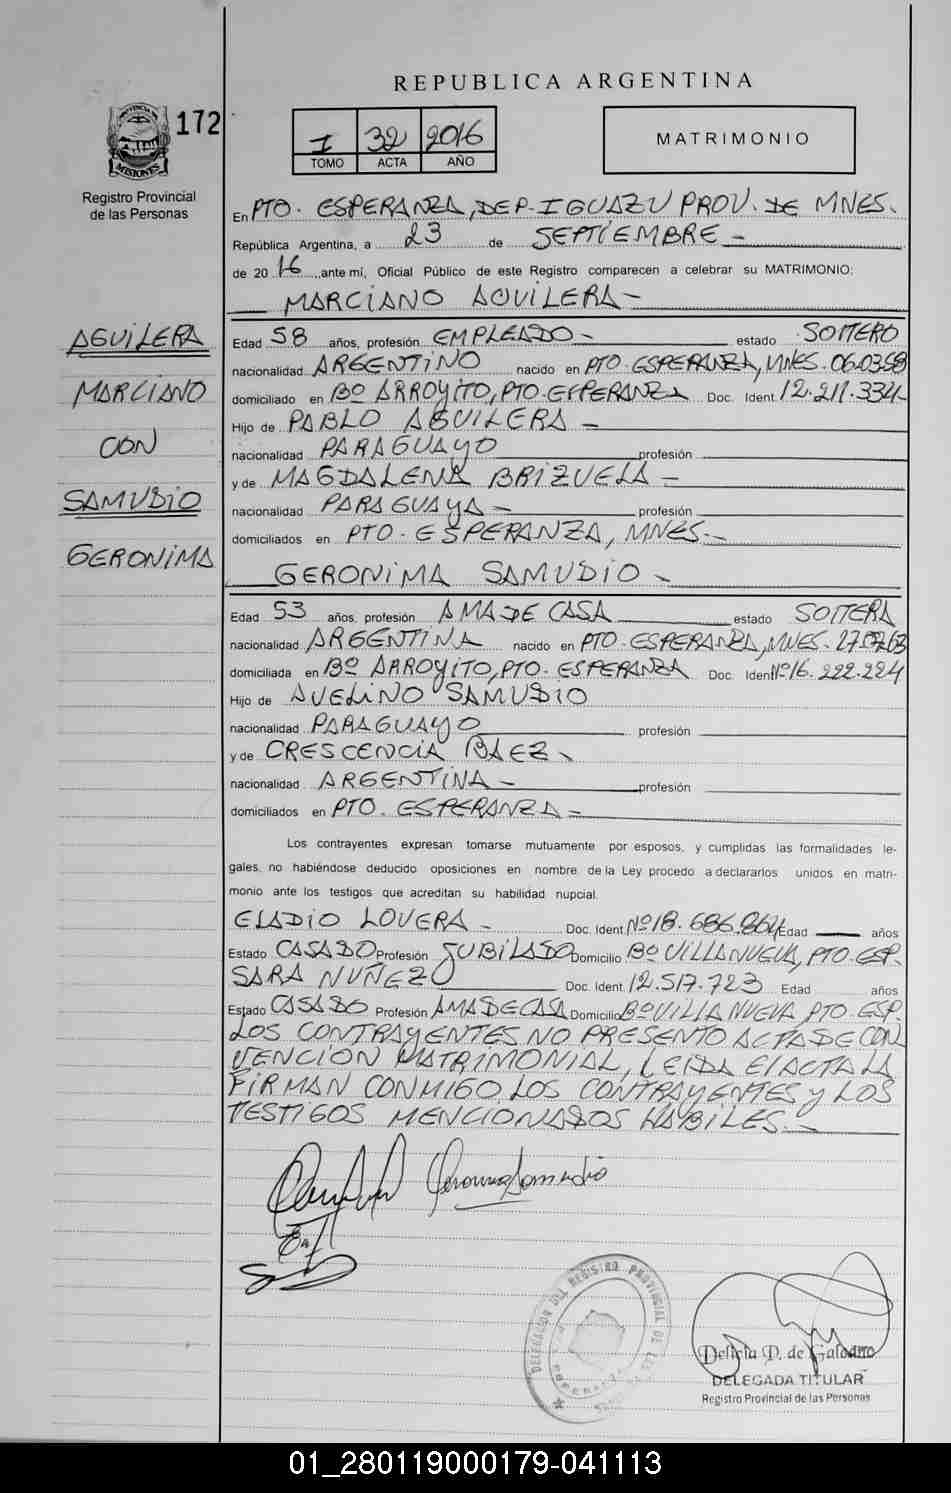 REPUBLICA ARGENTINA
PROVINCIA DE
MISIONES
172
Registro Provincial
de las Personas
I 32 2016
TOMO ACTA AÑO
MATRIMONIO
En PTO. ESPERANZA, DEP-IGUAZU PROV. DE MNES.
República Argentina, a 23 de SEPTIEMBRE -
de 2016, ante mí, Oficial Público de este Registro comparecen a celebrar su MATRIMONIO:
MARCIANO AGUILERA -
AGUILERA
MARCIANO
CON
SAMUDIO
GERONIMA
Edad 58 años, profesión EMPLEADO - estado SOLTERO
nacionalidad ARGENTINO nacido en PTO. ESPERANZA, MNES. 06.03.58
domiciliado en Bº ARROYITO, PTO. ESPERANZA Doc. Ident. 12.211.334-
Hijo de PABLO AGUILERA -
nacionalidad PARAGUAYO profesión
y de MAGDALENA BRIZUELA -
nacionalidad PARAGUAYA - profesión
domiciliados en PTO. ESPERANZA, MNES. -
GERONIMA SAMUDIO -
Edad 53 años, profesión AMA DE CASA estado SOLTERA
nacionalidad ARGENTINA nacido en PTO. ESPERANZA, MNES. 27.07.63
domiciliada en Bº ARROYITO, PTO. ESPERANZA Doc. Ident Nº 16.222.224
Hijo de AVELINO SAMUDIO
nacionalidad PARAGUAYO profesión
y de CRESCENCIA BAEZ -
nacionalidad ARGENTINA - profesión
domiciliados en PTO. ESPERANZA -
Los contrayentes expresan tomarse mutuamente por esposos, y cumplidas las formalidades le-
gales, no habiéndose deducido oposiciones en nombre de la Ley procedo a declararlos unidos en matri-
monio ante los testigos que acreditan su habilidad nupcial.
ELADIO LOVERA - Doc. Ident Nº 18.686.864 Edad — años
Estado CASADO Profesión JUBILADO Domicilio Bº VILLA NUEVA, PTO. ESP.
SARA NUÑEZ Doc. Ident. 12.517.723 Edad años
Estado CASADO Profesión AMA DE CASA Domicilio Bº VILLA NUEVA PTO. ESP.
LOS CONTRAYENTES NO PRESENTO ACTA DE CON
VENCION MATRIMONIAL, LEIDA El ACTA LA
FIRMAN CONMIGO LOS CONTRAYENTES y LOS
TESTIGOS MENCIONADOS HABILES. -
Geronima Samudio
DELEGACION DEL REGISTRO PROVINCIAL DE LAS
DELEGADA TITULAR
Registro Provincial de las Personas
01_280119000179-041113